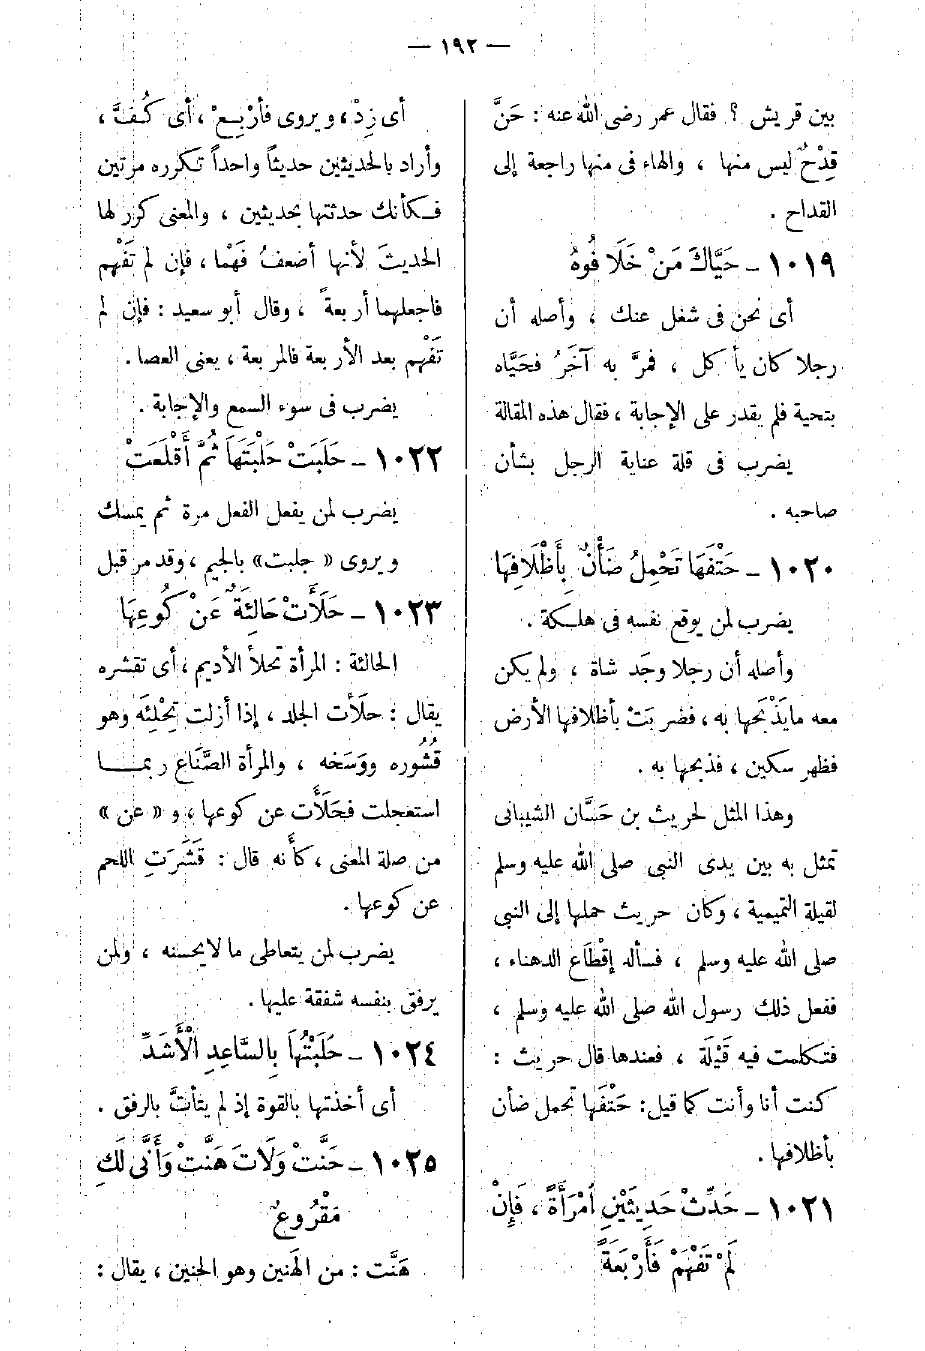 — ١٩٢ —
بين قريش ؟ فقال عمر رضى الله عنه : حَنَّ
قِدْحٌ ليس منها ، والهاء فى منها راجعة إلى
القداح .
١٠١٩ - حَيَّاكَ مَنْ خَلَا فُوهُ
أى نحن فى شغل عنك ، وأصله أن
رجلا كان يأكل ، فمرَّ به آخَرُ فحَيَّاه
بتحية فلم يقدر على الإجابة ، فقال هذه المقالة
يضرب فى قلة عناية الرجل بشأن
صاحبه .
١٠٢٠ - حَتْفَهَا تَحْمِلُ ضَأْنٌ بِأَظْلَافِهَا
يضرب لمن يوقع نفسه فى هلكة .
وأصله أن رجلا وجَد شاة ، ولم يكن
معه ما يَذْبَحها به ، فضربَتْ بأظلافها الأرض
فظهر سكين ، فذبحها به .
وهذا المثل لحريث بن حَسَّان الشيبانى
تمثل به بين يدى النبى صلى الله عليه وسلم
لقيلة التميمية ، وكان حريث حملها إلى النبى
صلى الله عليه وسلم ، فسأله إقْطَاع الدهناء ،
ففعل ذلك رسول الله صلى الله عليه وسلم ،
فتكلمت فيه قَيْلَة ، فعندها قال حريث :
كنت أنا وأنت كما قيل: حَتْفَها تحمل ضأن
بأظلافها .
١٠٢١ - حَدِّثْ حَدِيثَيْنِ امْرَأَةً ، فَإِنْ
لَمْ تَفْهَمْ فَأَرْبَعَةً
أى زِدْ ، ويروى فأرْبِعْ ، أى كُفَّ ،
وأراد بالحديثين حديثاً واحداً تكرره مرتين
فكأنك حدثتها بحديثين ، والمعنى كرر لها
الحديثَ لأنها أضعفُ فَهْما ، فإن لم تَفْهم
فاجعلهما أربعةً ، وقال أبو سعيد : فإن لم
تَفْهم بعد الأربعة فالمربعة ، يعنى العصا .
يضرب فى سوء السمع والإجابة .
١٠٢٢ - حَلَبَتْ حَلْبَتَهَا ثُمَّ أَقْلَعَتْ
يضرب لمن يفعل الفعل مرة ثم يمسك
ويروى « جلبت » بالجيم ، وقد مر قبل
١٠٢٣ - حَلَأَتْ حَالِئَةٌ عَنْ كُوعِهَا
الحالئة : المرأة تحلأ الأديم ، أى تقشره
يقال : حلَأت الجلد ، إذا أزلت تِحْلِئَه وهو
قُشُوره ووَسَخه ، والمرأة الصَّنَاع ربما
استعجلت فحَلَأت عن كوعها ، و « عن »
من صلة المعنى ، كأنه قال : قَشَرَتِ اللحم
عن كوعها .
يضرب لمن يتعاطى ما لا يحسنه ، ولمن
يرفق بنفسه شفقة عليها .
١٠٢٤ - حَلَبْتُهَا بِالسَّاعِدِ الْأَشَدِّ
أى أخذتها بالقوة إذ لم يتأتَّ بالرفق .
١٠٢٥ - حَنَّتْ وَلَاتَ هَنَّتْ وَأَنَّى لَكِ
مَقْرُوعٌ
هَنَّت : من الهَنين وهو الحنين ، يقال :